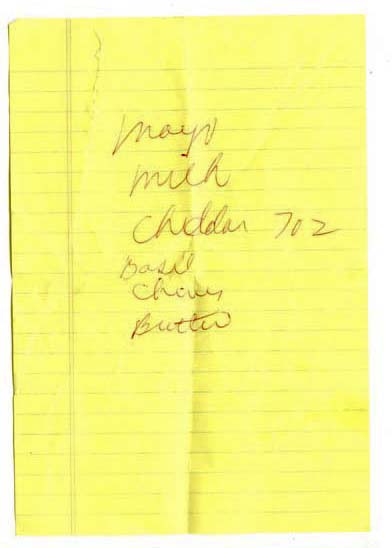 Mayo
Milk
Cheddar 7oz
Basil
Chives
Butter